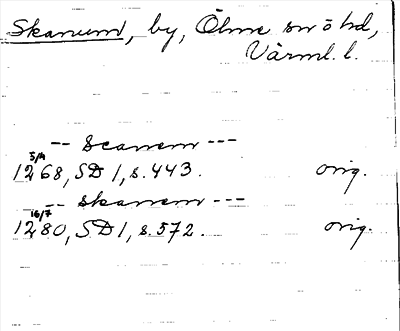 Skanum, by, Ölme sn ö hd,
Värml. l.
-- Scanem ---
5/4
1268, SD 1, s. 443. orig.
-- Skanem ---
16/7
1280, SD 1, s. 572. orig.